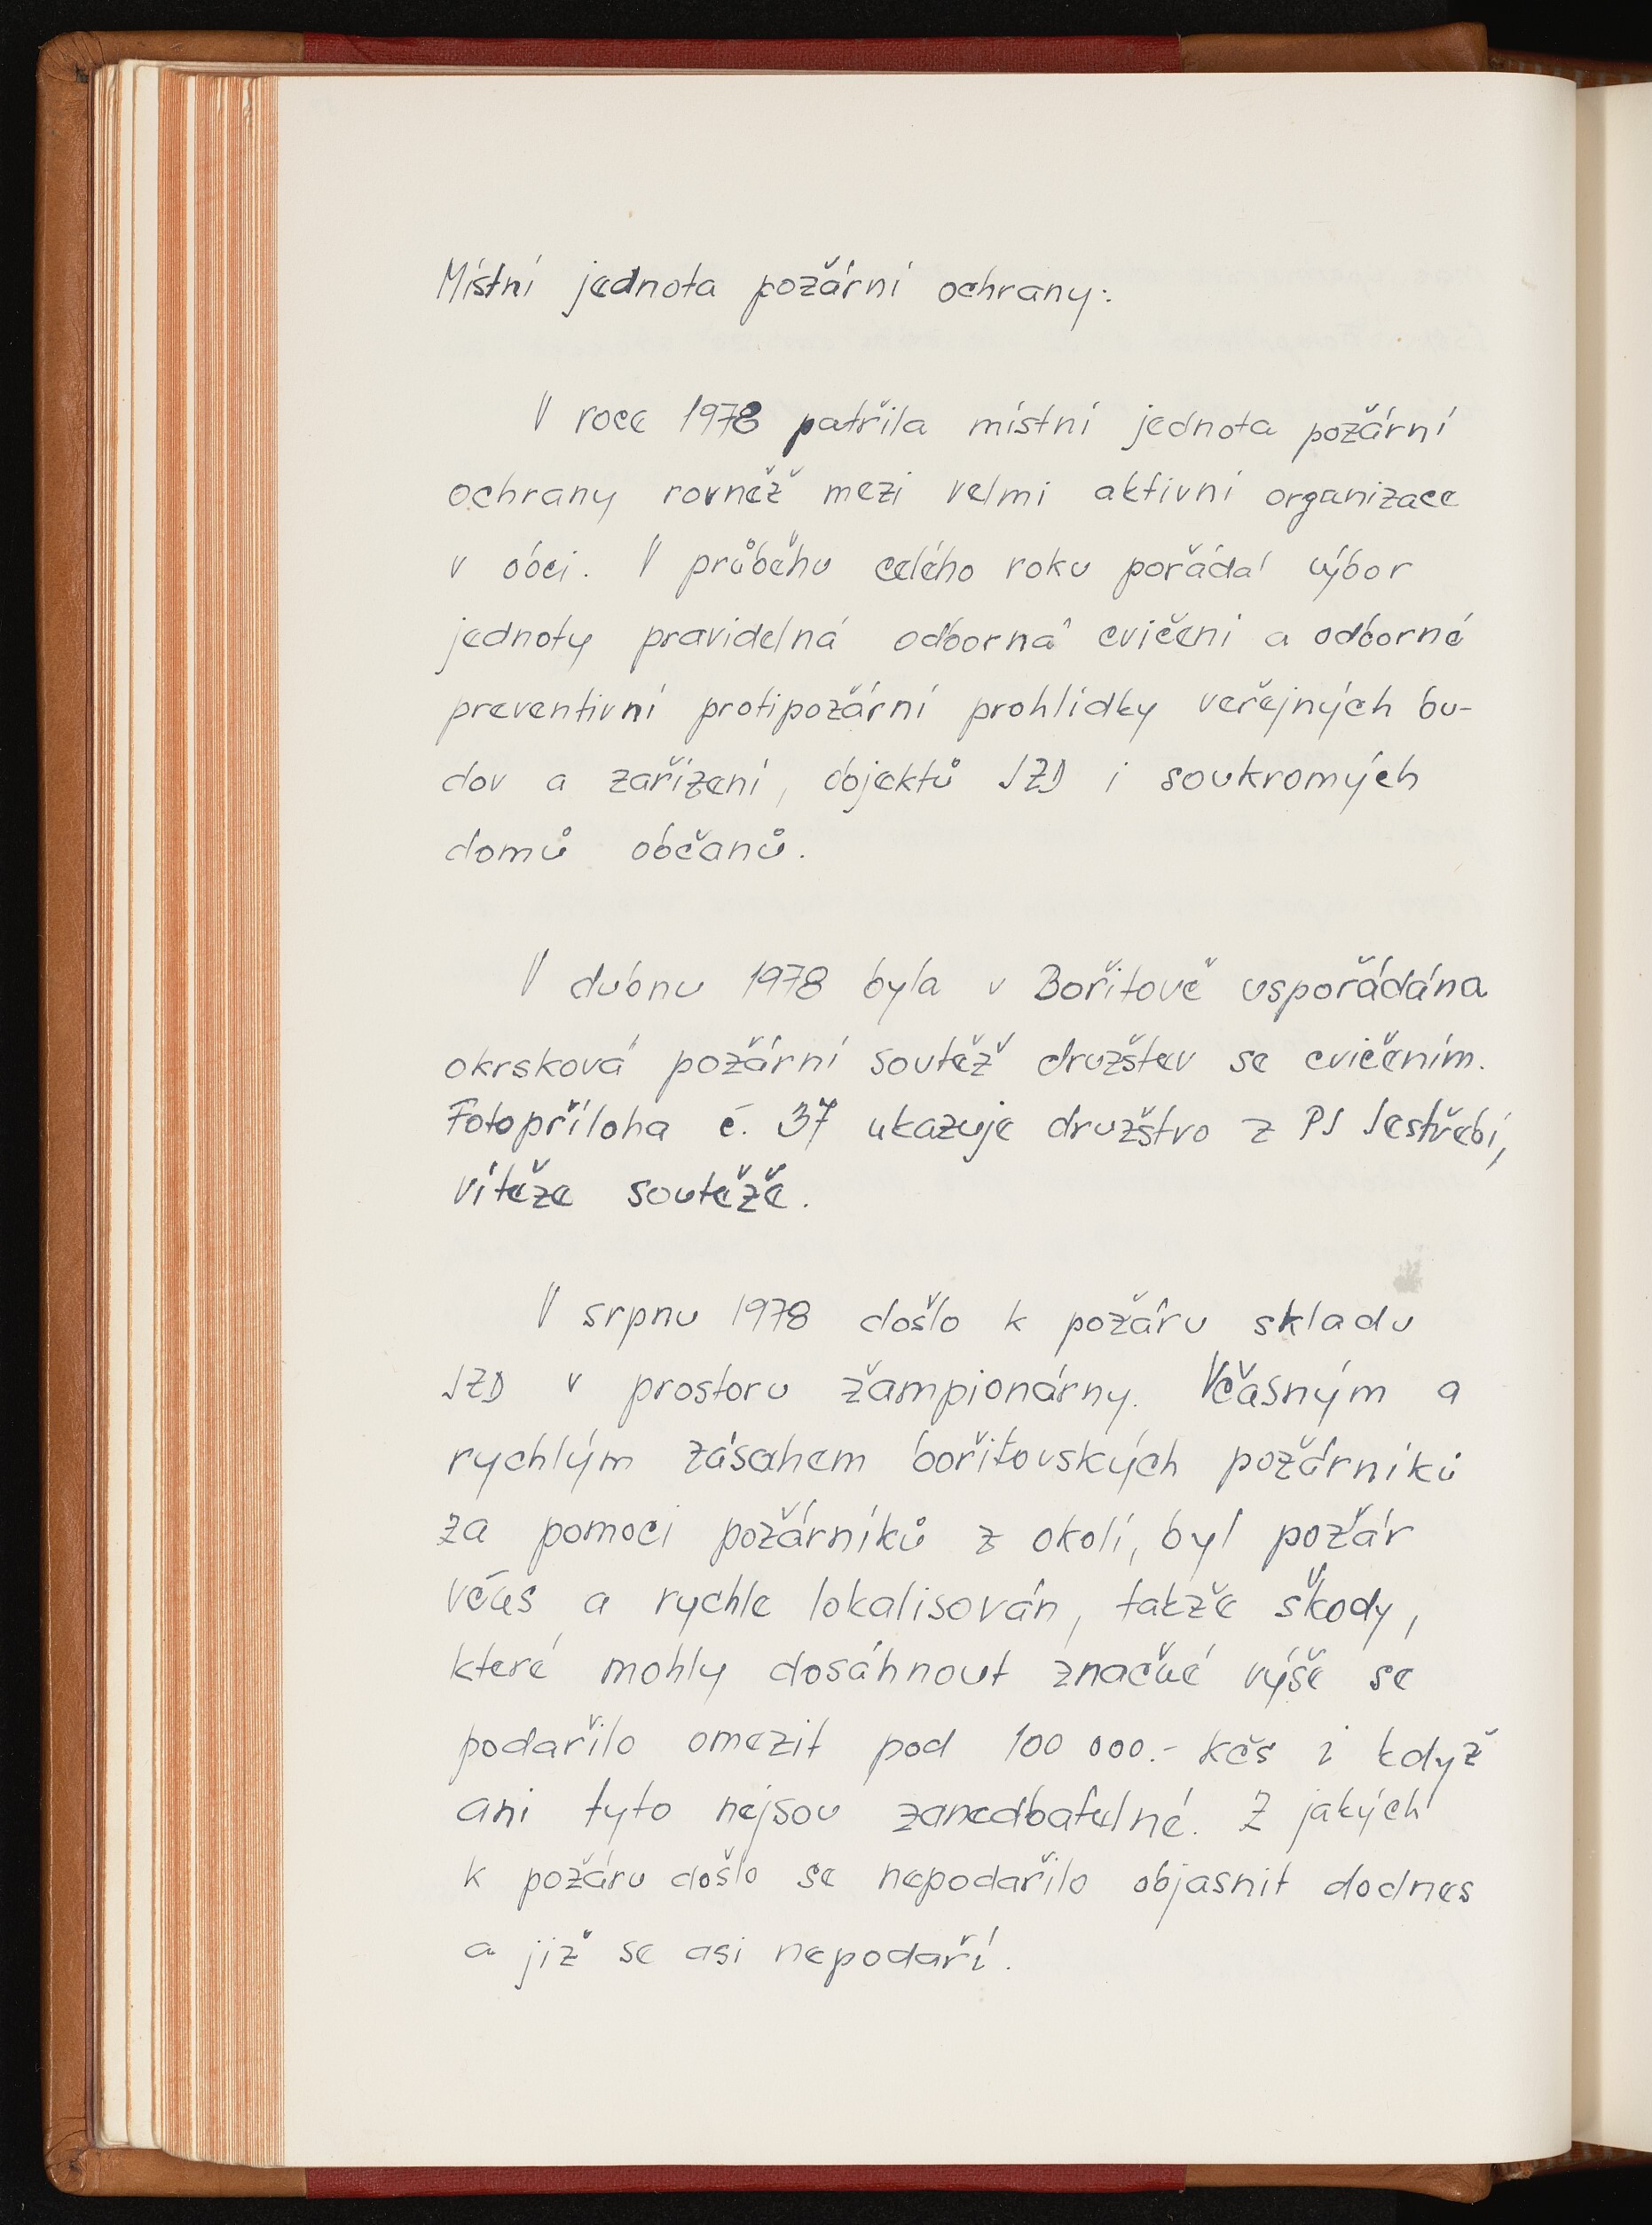 Místní jednota požární ochrany:
V roce 1978 patřila místní jednota požární
ochrany rovněž mezi velmi aktivní organizace
v obci. V průběhu celého roku pořádá výbor
jednoty pravidelná odborná cvičení a odborné
preventivní protipožární prohlídky veřejných bu-
dov a zařízení, objektů JZD i soukromých
domů občanů.
V dubnu 1978 byla v Bořitově uspořádána
okrsková požární soutěž družstev se cvičením.
Fotopříloha č. 37 ukazuje družstvo z PJ Jestřebí,
vítěze soutěže.
V srpnu 1978 došlo k požáru skladu
JZD v prostoru žampionárny. Včasným a
rychlým zásahem bořitovských požárníků
za pomoci požárníků z okolí, byl požár
včas a rychle lokalisován, takže škody,
které mohly dosáhnout značné výše se
podařilo omezit pod 100 000.- kčs i když
ani tyto nejsou zanedbatelné. Z jakých
k požáru došlo se nepodařilo objasnit dodnes
a již se asi nepodaří.